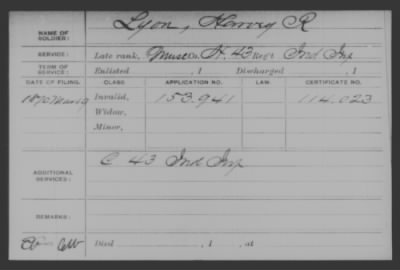 NAME OF SOLDIER: Lyon, Harvey R
SERVICE: Late rank, Musc Co. H, 43 Reg't Ind Inf
TERM OF SERVICE: Enlisted , 1 Discharged , 1
DATE OF FILING. CLASS. APPLICATION NO. LAW. CERTIFICATE NO.
1870 Mar 19 Invalid, 153.941 114.023
Widow,
Minor,
ADDITIONAL SERVICES: C 43 Ind Inf
REMARKS:
Died , 1 , at